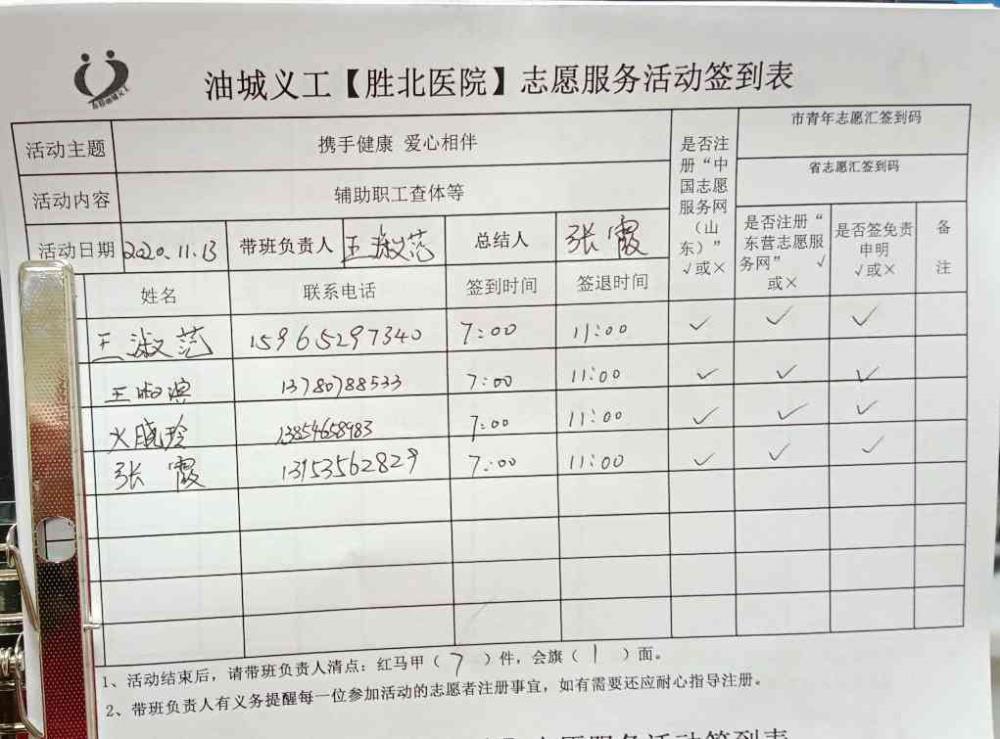 油城义工【胜北医院】志愿服务活动签到表
活动主题 携手健康 爱心相伴
活动内容 辅助职工查体等
活动日期 2020.11.13 带班负责人 王淑范 总结人 张霞
是否注册“中国志愿服务网（山东）” √或×
市青年志愿汇签到码
省志愿汇签到码
是否注册“东营志愿服务网” √或×
是否签免责申明 √或×
备注
姓名 联系电话 签到时间 签退时间
王淑范 15965297340 7:00 11:00 ✓ ✓ ✓
王淑滨 13780788533 7:00 11:00 ✓ ✓ ✓
火晓玲 13854658983 7:00 11:00 ✓ ✓ ✓
张霞 13153562829 7:00 11:00 ✓ ✓ ✓
1、活动结束后，请带班负责人清点：红马甲（7）件，会旗（1）面。
2、带班负责人有义务提醒每一位参加活动的志愿者注册事宜，如有需要还应耐心指导注册。